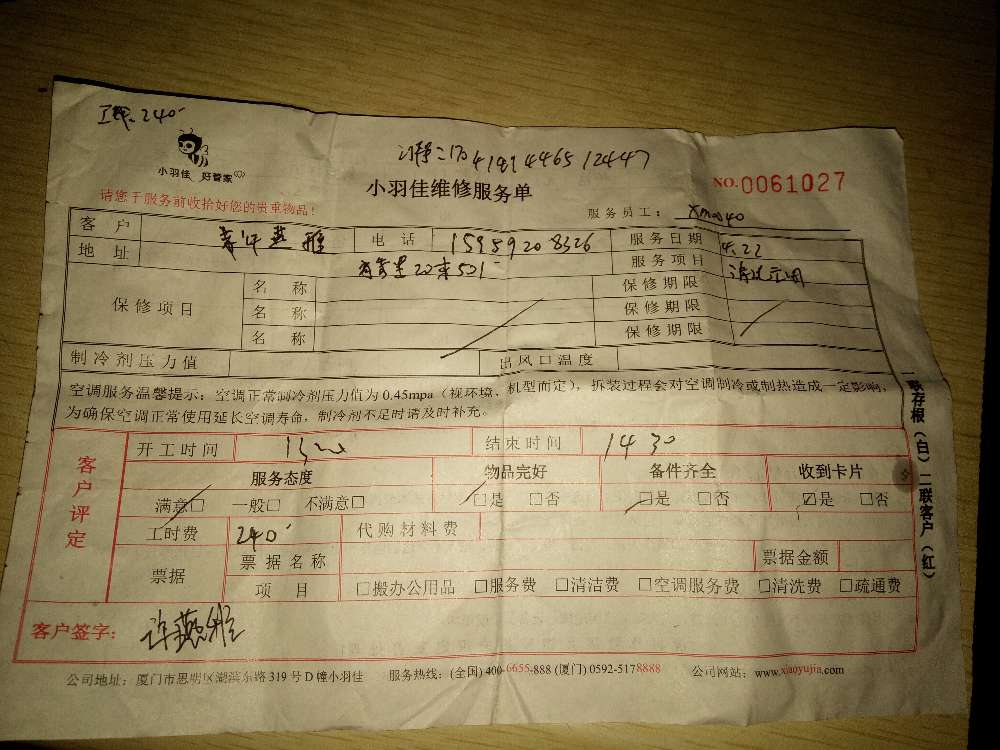 240
4191446512447
小羽佳 好管家
小羽佳维修服务单
NO.0061027
请您于服务前收拾好您的贵重物品！
服务员工：
客户 燕雅 电话 15959208326 服务日期 4.22
地址 22 501 服务项目 清洗空调
保修项目 名称 保修期限
名称 保修期限
名称 保修期限
制冷剂压力值 出风口温度
空调服务温馨提示：空调正常制冷剂压力值为0.45mpa（视环境、机型而定），拆装过程会对空调制冷或制热造成一定影响，
为确保空调正常使用延长空调寿命，制冷剂不足时请及时补充。
客户评定
开工时间 结束时间 1430
服务态度 物品完好 备件齐全 收到卡片
满意□ 一般□ 不满意□ □是 □否 □是 □否 ☑是 □否
工时费 240 代购材料费
票据 票据名称 票据金额
项目 □搬办公用品 □服务费 □清洁费 □空调服务费 □清洗费 □疏通费
客户签字： 许燕雅
公司地址：厦门市思明区湖滨东路319号D幢小羽佳 服务热线：(全国) 400-6655-888 (厦门) 0592-5178888 公司网站：www.xiaoyujia.com
联存根（白）二联客户（红）